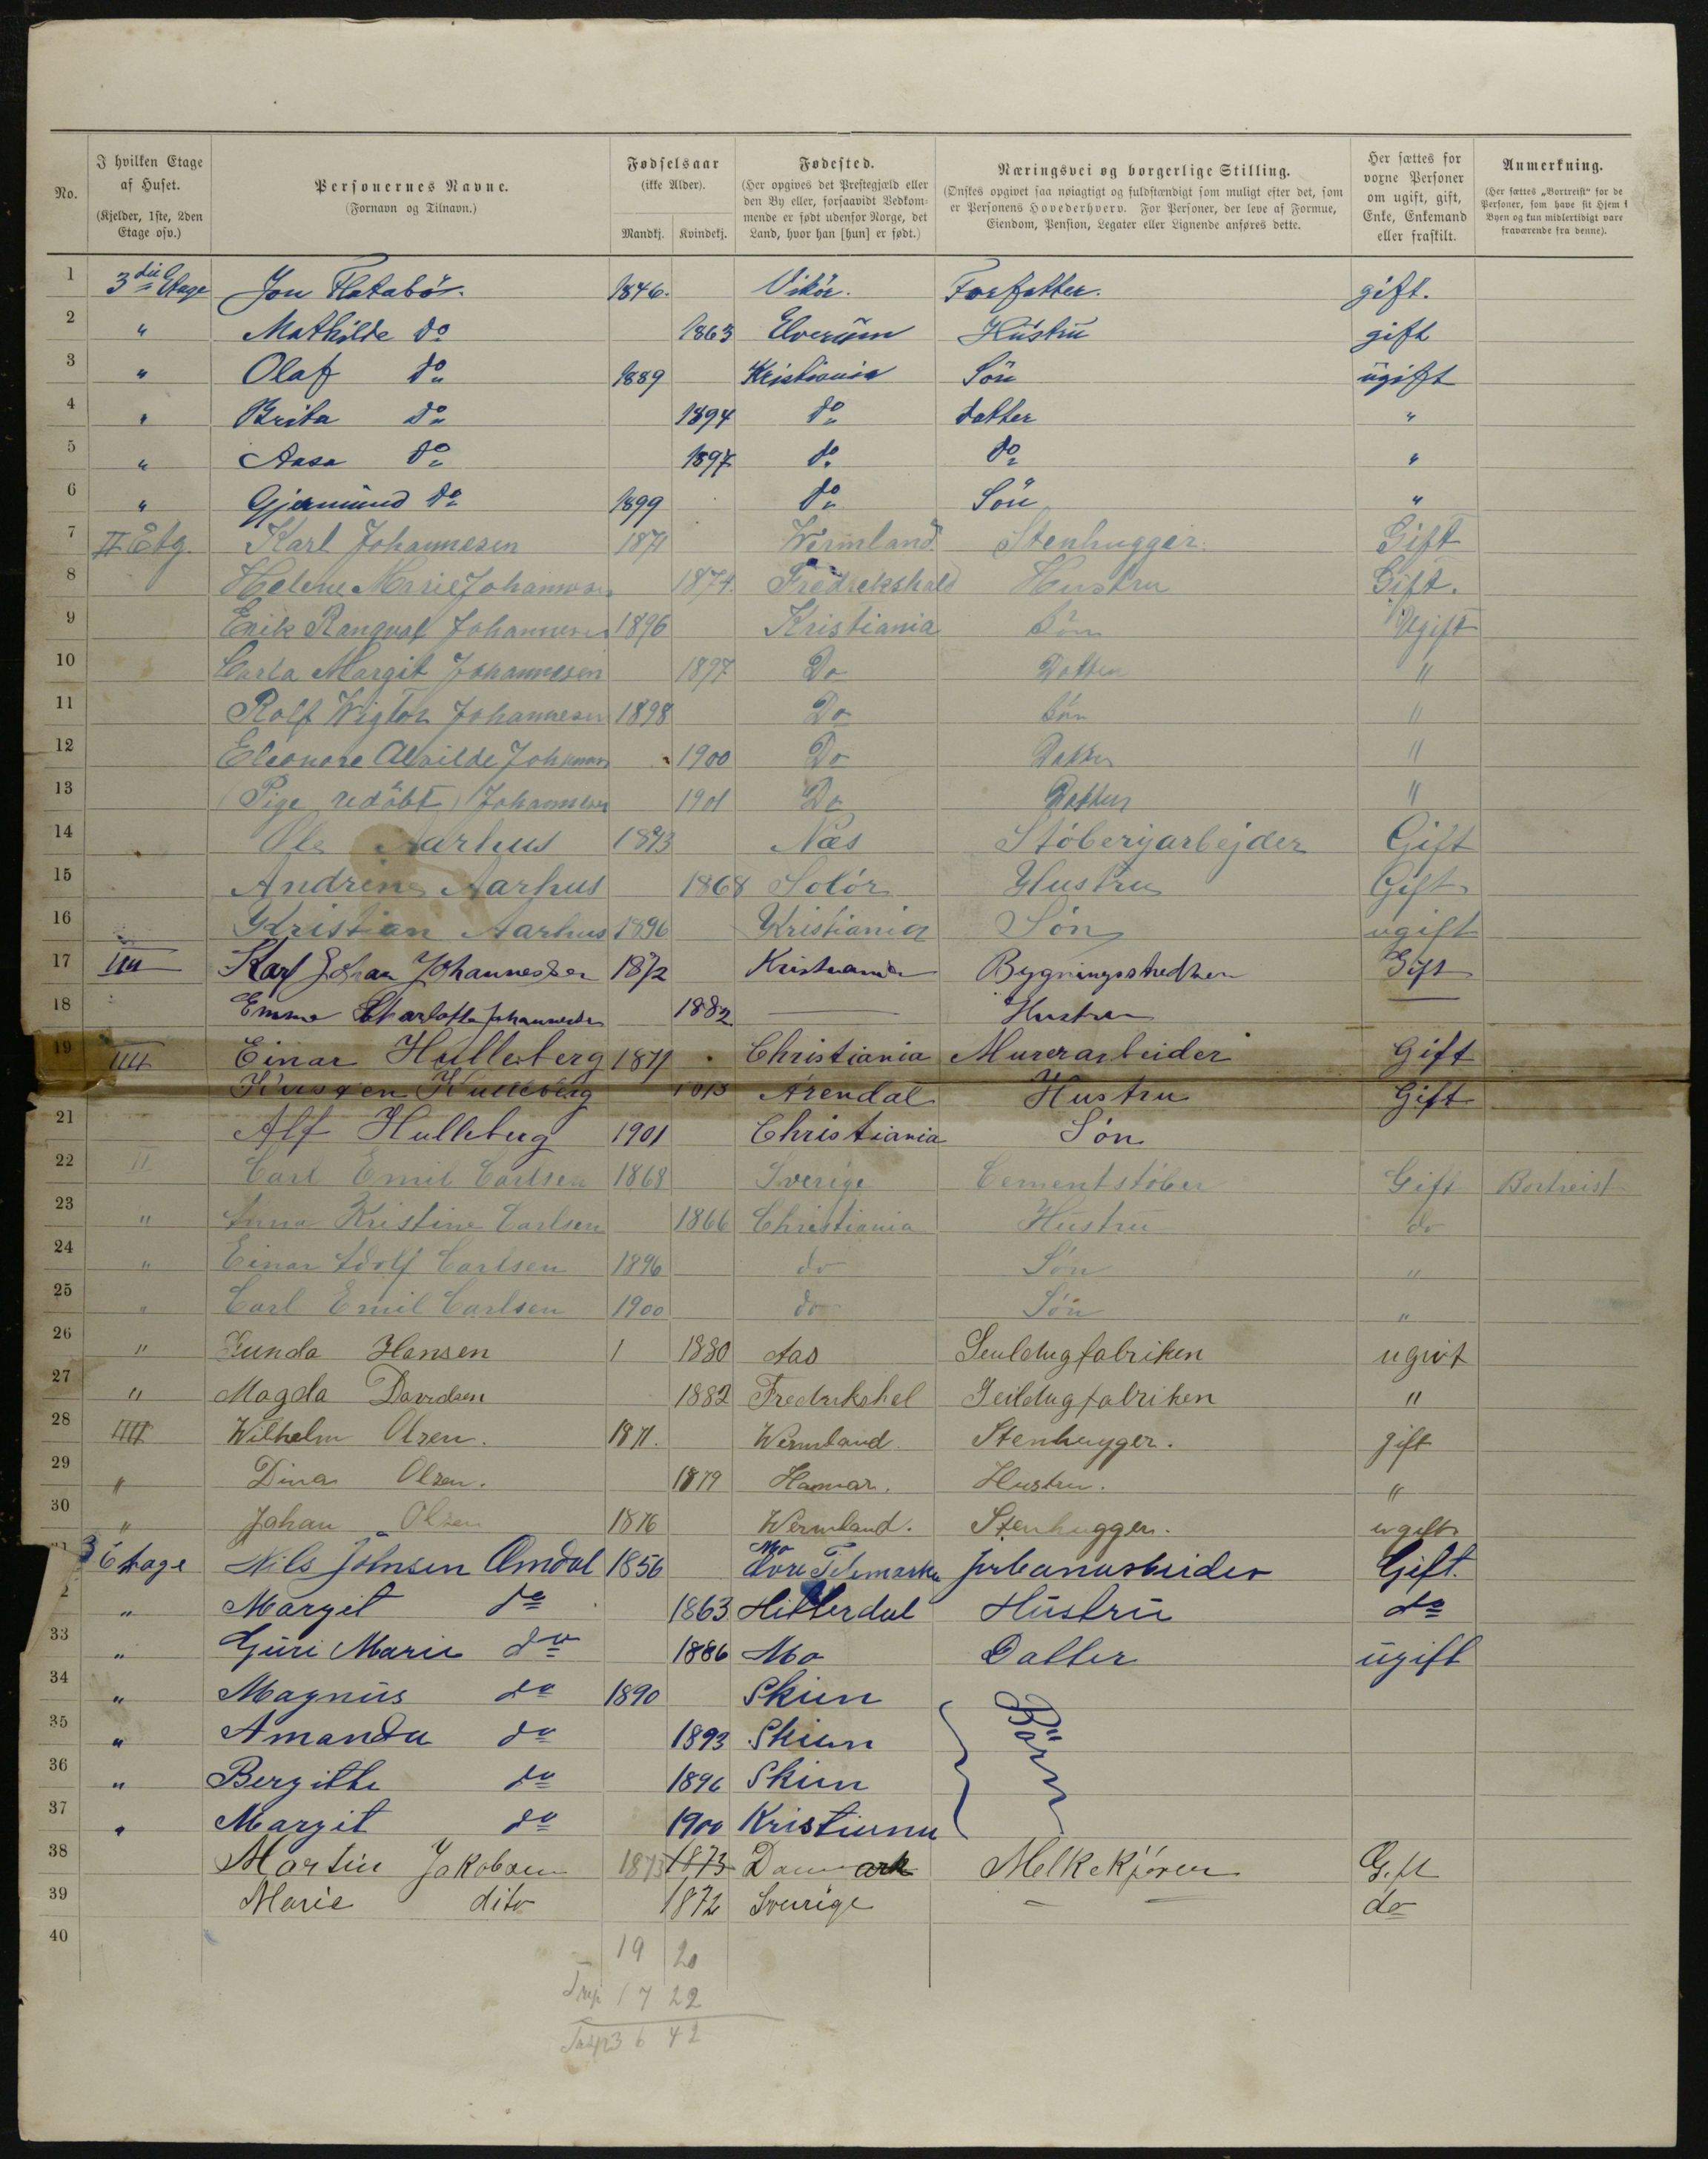 No. | I hvilken Etage af Huset. (Kjelder, 1ste, 2den Etage osv.) | Personernes Navne. (Fornavn og Tilnavn.) | Fødselsaar (ikke Alder). Mandkj. | Kvindekj. | Fødested. (Her opgives det Prestegjæld eller den By eller, forsaavidt Vedkommende er født udenfor Norge, det Land, hvor han [hun] er født.) | Næringsvei og borgerlige Stilling. (Ønskes opgivet saa nøiagtigt og fuldstændigt som muligt efter det, som er Personens Hovederhverv. For Personer, der leve af Formue, Eiendom, Pension, Legater eller Lignende anføres dette. | Her sættes for voxne Personer om ugift, gift, Enke, Enkemand eller fraskilt. | Anmerkning. (Her sættes „Bortreist“ for de Personer, som have sit Hjem i Byen og kun midlertidigt vare fraværende fra denne).
1 3die Etage Jon Flatabö. 1846. Vikör. Forfatter. gift.
2 " Mathilde do 1863 Elverum Hustru gift
3 " Olaf do 1889 Kristiania Sön ugift
4 " Brita do 1894 do datter "
5 " Aasa do 1897 do do "
6 " Gjermund do 1899 do Sön "
7 II Etg. Karl Johannesen 1871 Wermland Stenhugger. Gift
8 Helene Marie Johannesen 1874. Fredrekshald Hustru Gift.
9 Erik Rangval Johannesen 1896 Kristiania Sön Ugift
10 Carla Margit Johannesen 1897 Do Datter "
11 Rolf Wigtor Johannesen 1898 Do Sön "
12 Eleonore Alvilde Johannes 1900 Do Datter "
13 (Pige udöbt) Johannesen 1901 Do Datter "
14 Ole Aarhus 1873 Næs Stöberiarbejder Gift
15 Andrine Aarhus 1868 Solör Hustru Gift
16 Kristian Aarhus 1896 Kristiania Sön ugift
17 Karl Johan Johannessen 1872 Kristiania Gift
18 Emma Charlotte Johannesen 1882 — Hustru —
19 IIII Einar Hulleberg 1871 Christiania Murerarbeider Gift
Hulleberg Arendal Hustru Gift
21 Alf Hulleberg 1901 Christiania Søn
22 II Carl Emil Carlsen 1868 Sverige Cementstöber Gift Bortreist
23 " Anna Kristine Carlsen 1866 Christiania Hustru do
24 " Einar Adolf Carlsen 1896 do Søn "
25 " Carl Emil Carlsen 1900 do Søn "
26 " Gunda Hansen 1 1880 Aas Seuldugfabriken ugivt
27 " Magda Davidsen 1882 Fredrikshal Seildugfabriken "
28 IIII Wilhelm Olsen. 1871. Wermland. Stenhugger. gift
29 " Dina Olsen. 1879 Hamar. Hustru. "
30 " Johan Olsen 1876 Wermland. Stenhugger. ugift
3 Etage Nils Johnsen Omdal 1856 Mo Telemarken Gift.
2 " Margit do 1863 Hitterdal Hustru do
33 " Guri Marie do 1886 Mo Datter ugift
34 " Magnus do 1890 Skien Börn
35 " Amanda do 1893 Skien
36 " Bergithe do 1896 Skien
37 " Margit do 1900 Kristiania
38 Martin Jakobsen 1873 1873 Danmark Melkekjörer Gift
39 Marie dito 1872 Sverige — — do
40
19 20
17 22
36 42